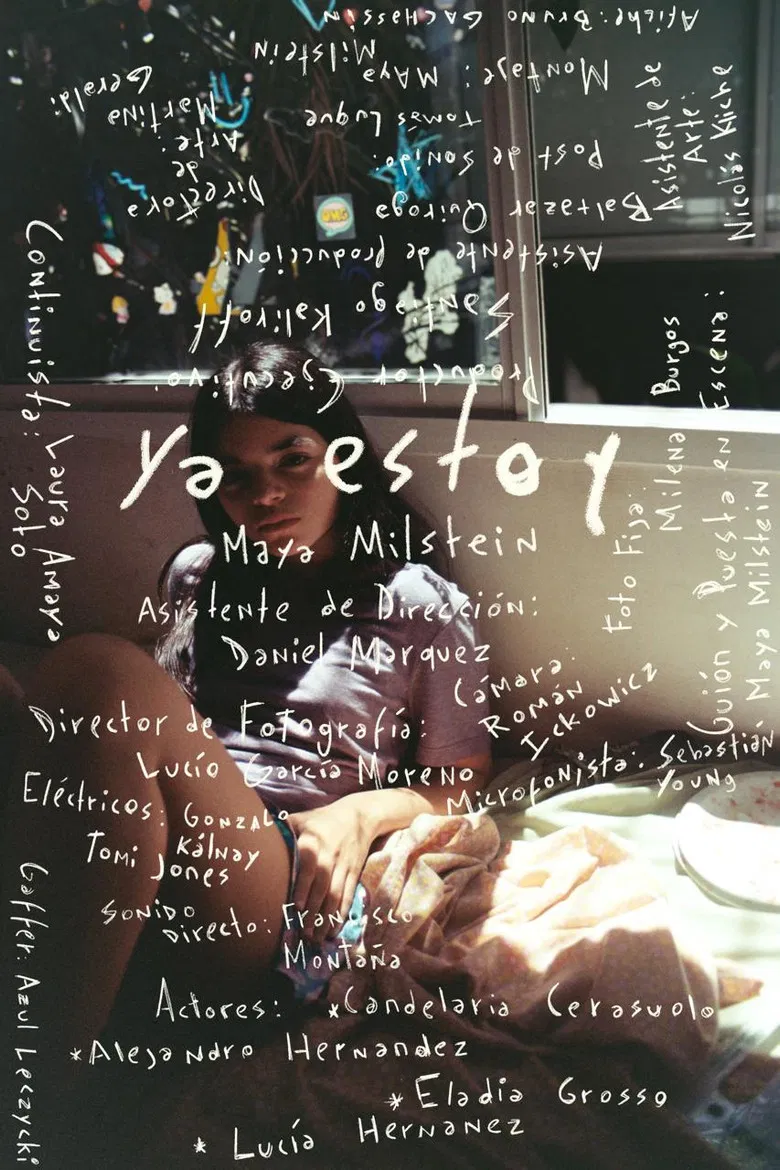 ya estoy
Maya Milstein
Asistente de Dirección:
Daniel Marquez
Cámara:
Román
Ickowicz
Director de Fotografía:
Lucío García Moreno
Microfonista: Sebastián
Young
Eléctricos: Gonzalo
Kálnay
Tomi Jones
Sonido
Directo: Francisco
Montaña
Actores: *Candelaria Cerasuolo
*Alejandro Hernandez
*Eladia Grosso
*Lucía Hernanez
Gaffer: Azul Leczycki
Continuista: Laura Amaya
Soto
Productor Ejecutivo:
Santiago Kaliroff
Asistente de producción:
Baltazar Quiroga
Post de sonido:
Tomás Luque
Montaje: Maya
Milstein
Afiche: Bruno Gachassin
Directora
de
Arte:
Martina
Geraldi
Asistente de
Arte:
Nicolás Kiche
Foto Fija:
Milena Burgos
Guión y Puesta en Escena:
Maya Milstein